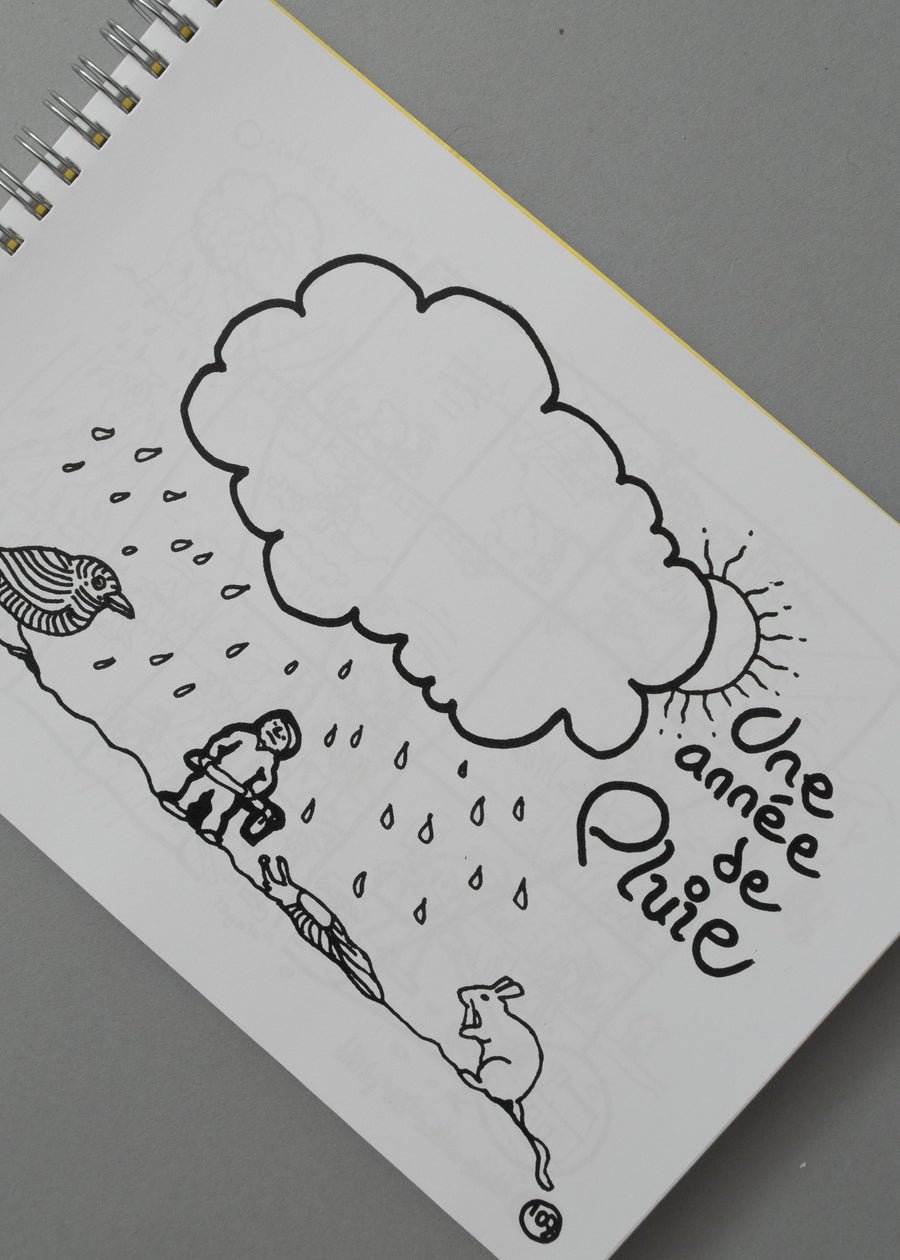 Une
année
de
Pluie